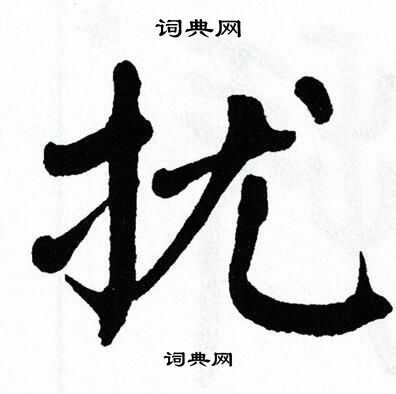 词典网
扰
词典网